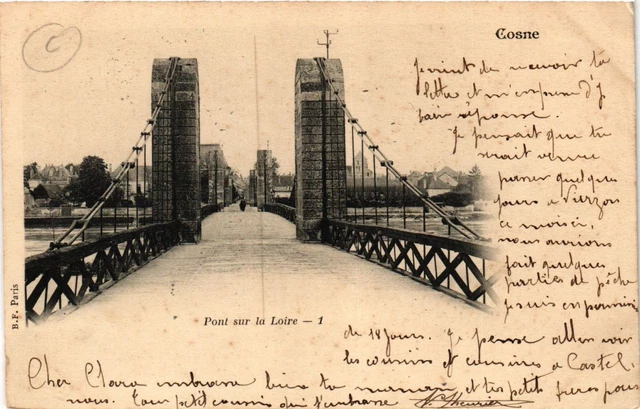 Cosne
je vient de recevoir ta
lettre et m'empresse d'y
faire réponse.
Je pensait que tu
serait venue
passer quelque
jours a Vierzon
ce moi ci,
nous aurions
fait quelques
parties de pêche
je suis en
de 18 jours. Je pense aller voir
les cousins et cousines a Castel.
Cher Clara embrasse bien ta maman et tes petits frères pour
nous. Ton petit cousin qui t'embrasse
Pont sur la Loire — 1
B.F. Paris